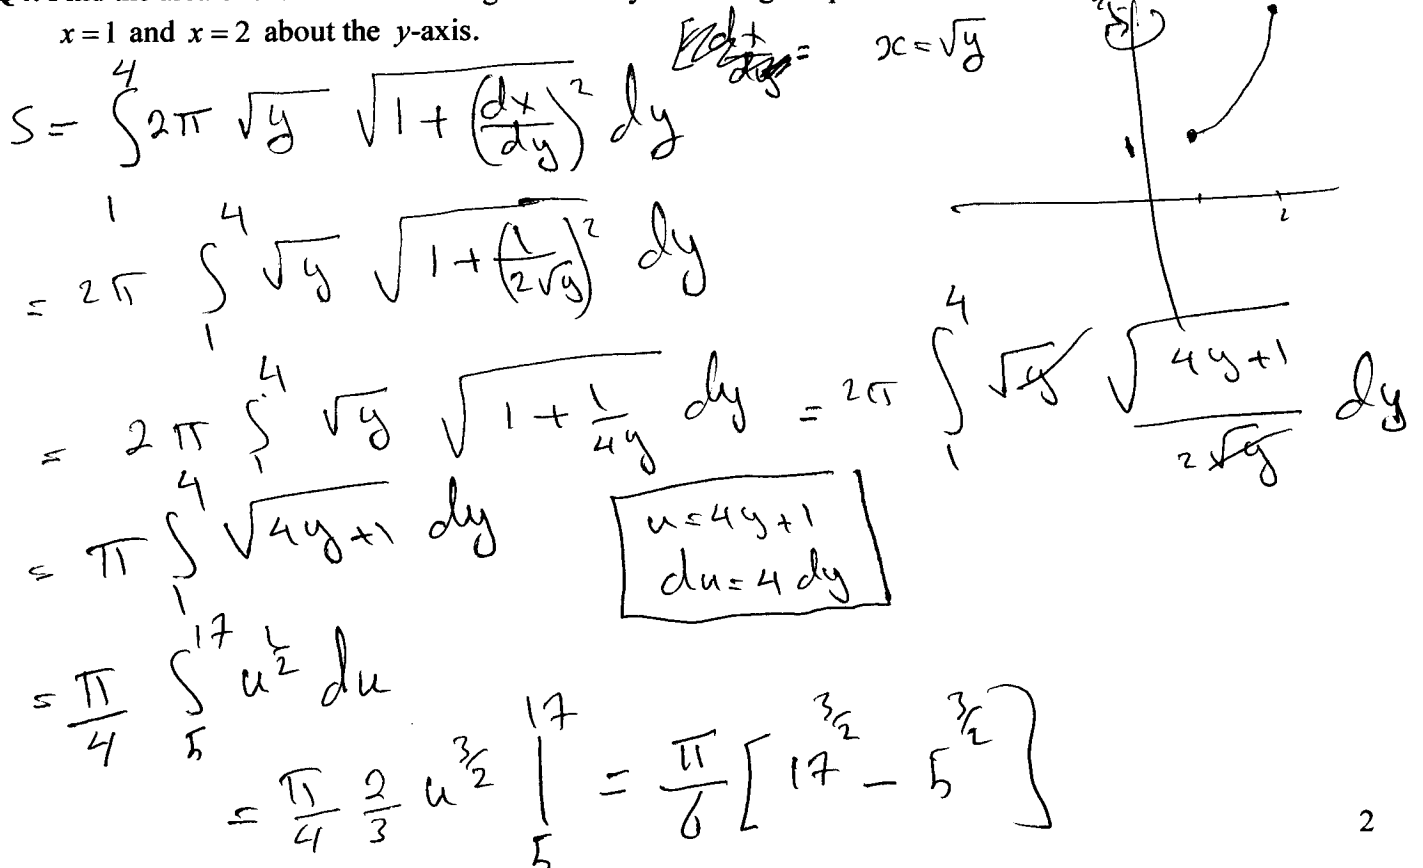 x = 1 and x = 2 about the y-axis.
x = √y
S = ∫₁⁴ 2π √y √(1 + (dx/dy)²) dy
= 2π ∫₁⁴ √y √(1 + (1/(2√y))²) dy
= 2π ∫₁⁴ √y √(1 + 1/(4y)) dy = 2π ∫₁⁴ √y √(4y+1)/(2√y) dy
= π ∫₁⁴ √(4y+1) dy
u = 4y+1
du = 4 dy
= π/4 ∫₅¹⁷ u^(1/2) du
= π/4 2/3 u^(3/2) |₅¹⁷ = π/6 [17^(3/2) − 5^(3/2)]
2
2